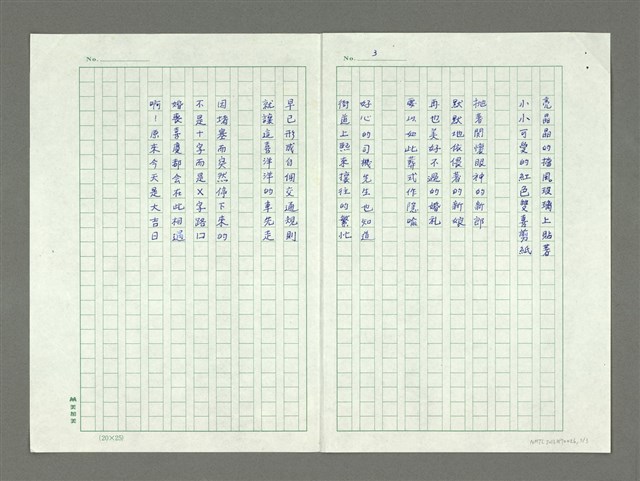 No.
3
亮晶晶的擋風玻璃上貼著
小小可愛的紅色雙喜剪紙
抛著關懷眼神的新郎
默默地依偎著的新娘
再也美好不過的婚礼
要以如此葬式作隐喻
好心的司機先生也知道
街道上熙来攘往的繁忙
No.
早已形成自個交通規則
就讓這喜洋洋的車先走
因堵塞而突然停下来的
不是十字而是X字路口
婚喪喜慶都会在此相遇
啊！原来今天是大吉日
(20×25)